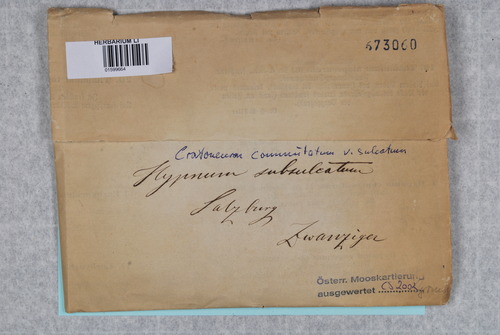 HERBARIUM LI
01599664
473060
Cratoneuron commutatum v. sulcatum
Hypnum subsulcatum
Salzburg
Zwanziger
Österr. Mooskartierung
ausgewertet 2002